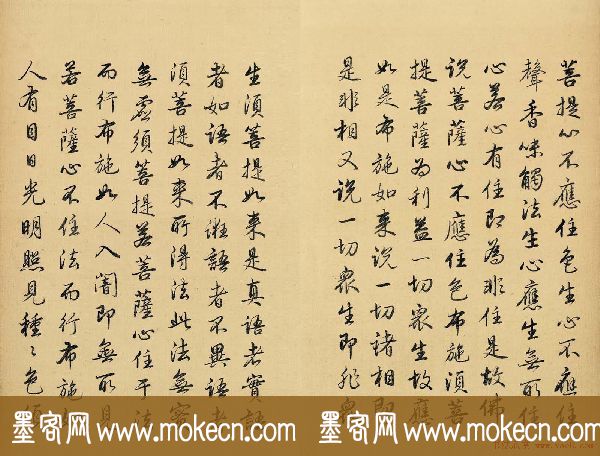 菩提心不應住色生心不應住
聲香味觸法生心應生無所住
心若心有住即為非住是故佛
說菩薩心不應住色布施須菩
提菩薩為利益一切眾生故應
如是布施如来說一切諸相即
是非相又說一切眾生即非眾
生須菩提如来是真語者實語
者如語者不誑語者不異語者
須菩提如来所得法此法無實
無虛須菩提若菩薩心住于法
而行布施如人入闇即無所見
若菩薩心不住法而行布施如
人有目日光明照見種〻色須
墨客网 www.mokecn.com 墨客网 www.mokecn.com